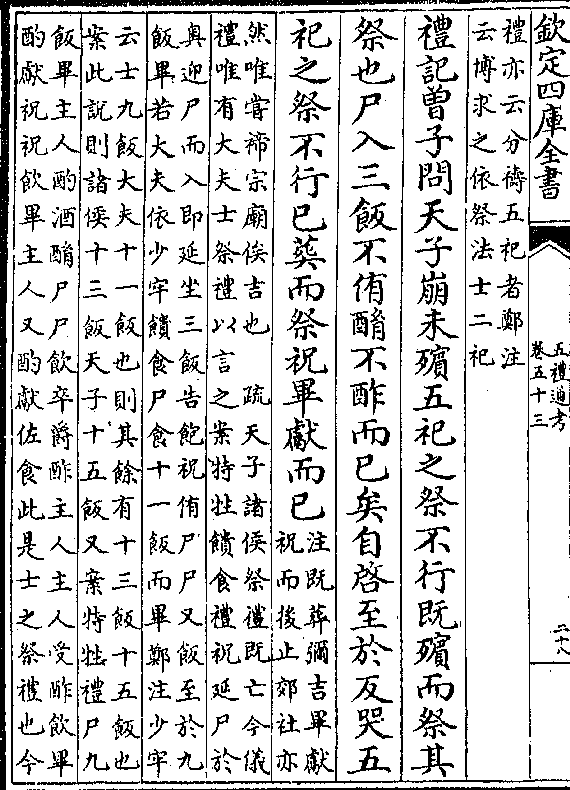 欽定四庫全書
五禮通考
卷五十三
二十八
禮亦云分禱五祀者鄭注
云博求之依祭法士二祀
禮記曽子問天子崩未殯五祀之祭不行既殯而祭其
祭也尸入三飯不侑酳不酢而已矣自啓至於反哭五
祀之祭不行已葬而祭祝畢獻而已
注既葬彌吉畢獻
祝而後止郊社亦
然唯嘗禘宗廟俟吉也 疏天子諸侯祭禮既亡今儀
禮唯有大夫士祭禮以言之案特牲饋食禮祝延尸於
奥迎尸而入即延坐三飯告飽祝侑尸尸又飯至於九
飯畢若大夫依少牢饋食尸食十一飯而畢鄭注少牢
云士九飯大夫十一飯也則其餘有十三飯十五飯也
案此説則諸侯十三飯天子十五飯又案特牲禮尸九
飯畢主人酌酒酳尸尸飲卒爵酢主人主人受酢飲畢
酌獻祝祝飲畢主人又酌獻佐食此是士之祭禮也今